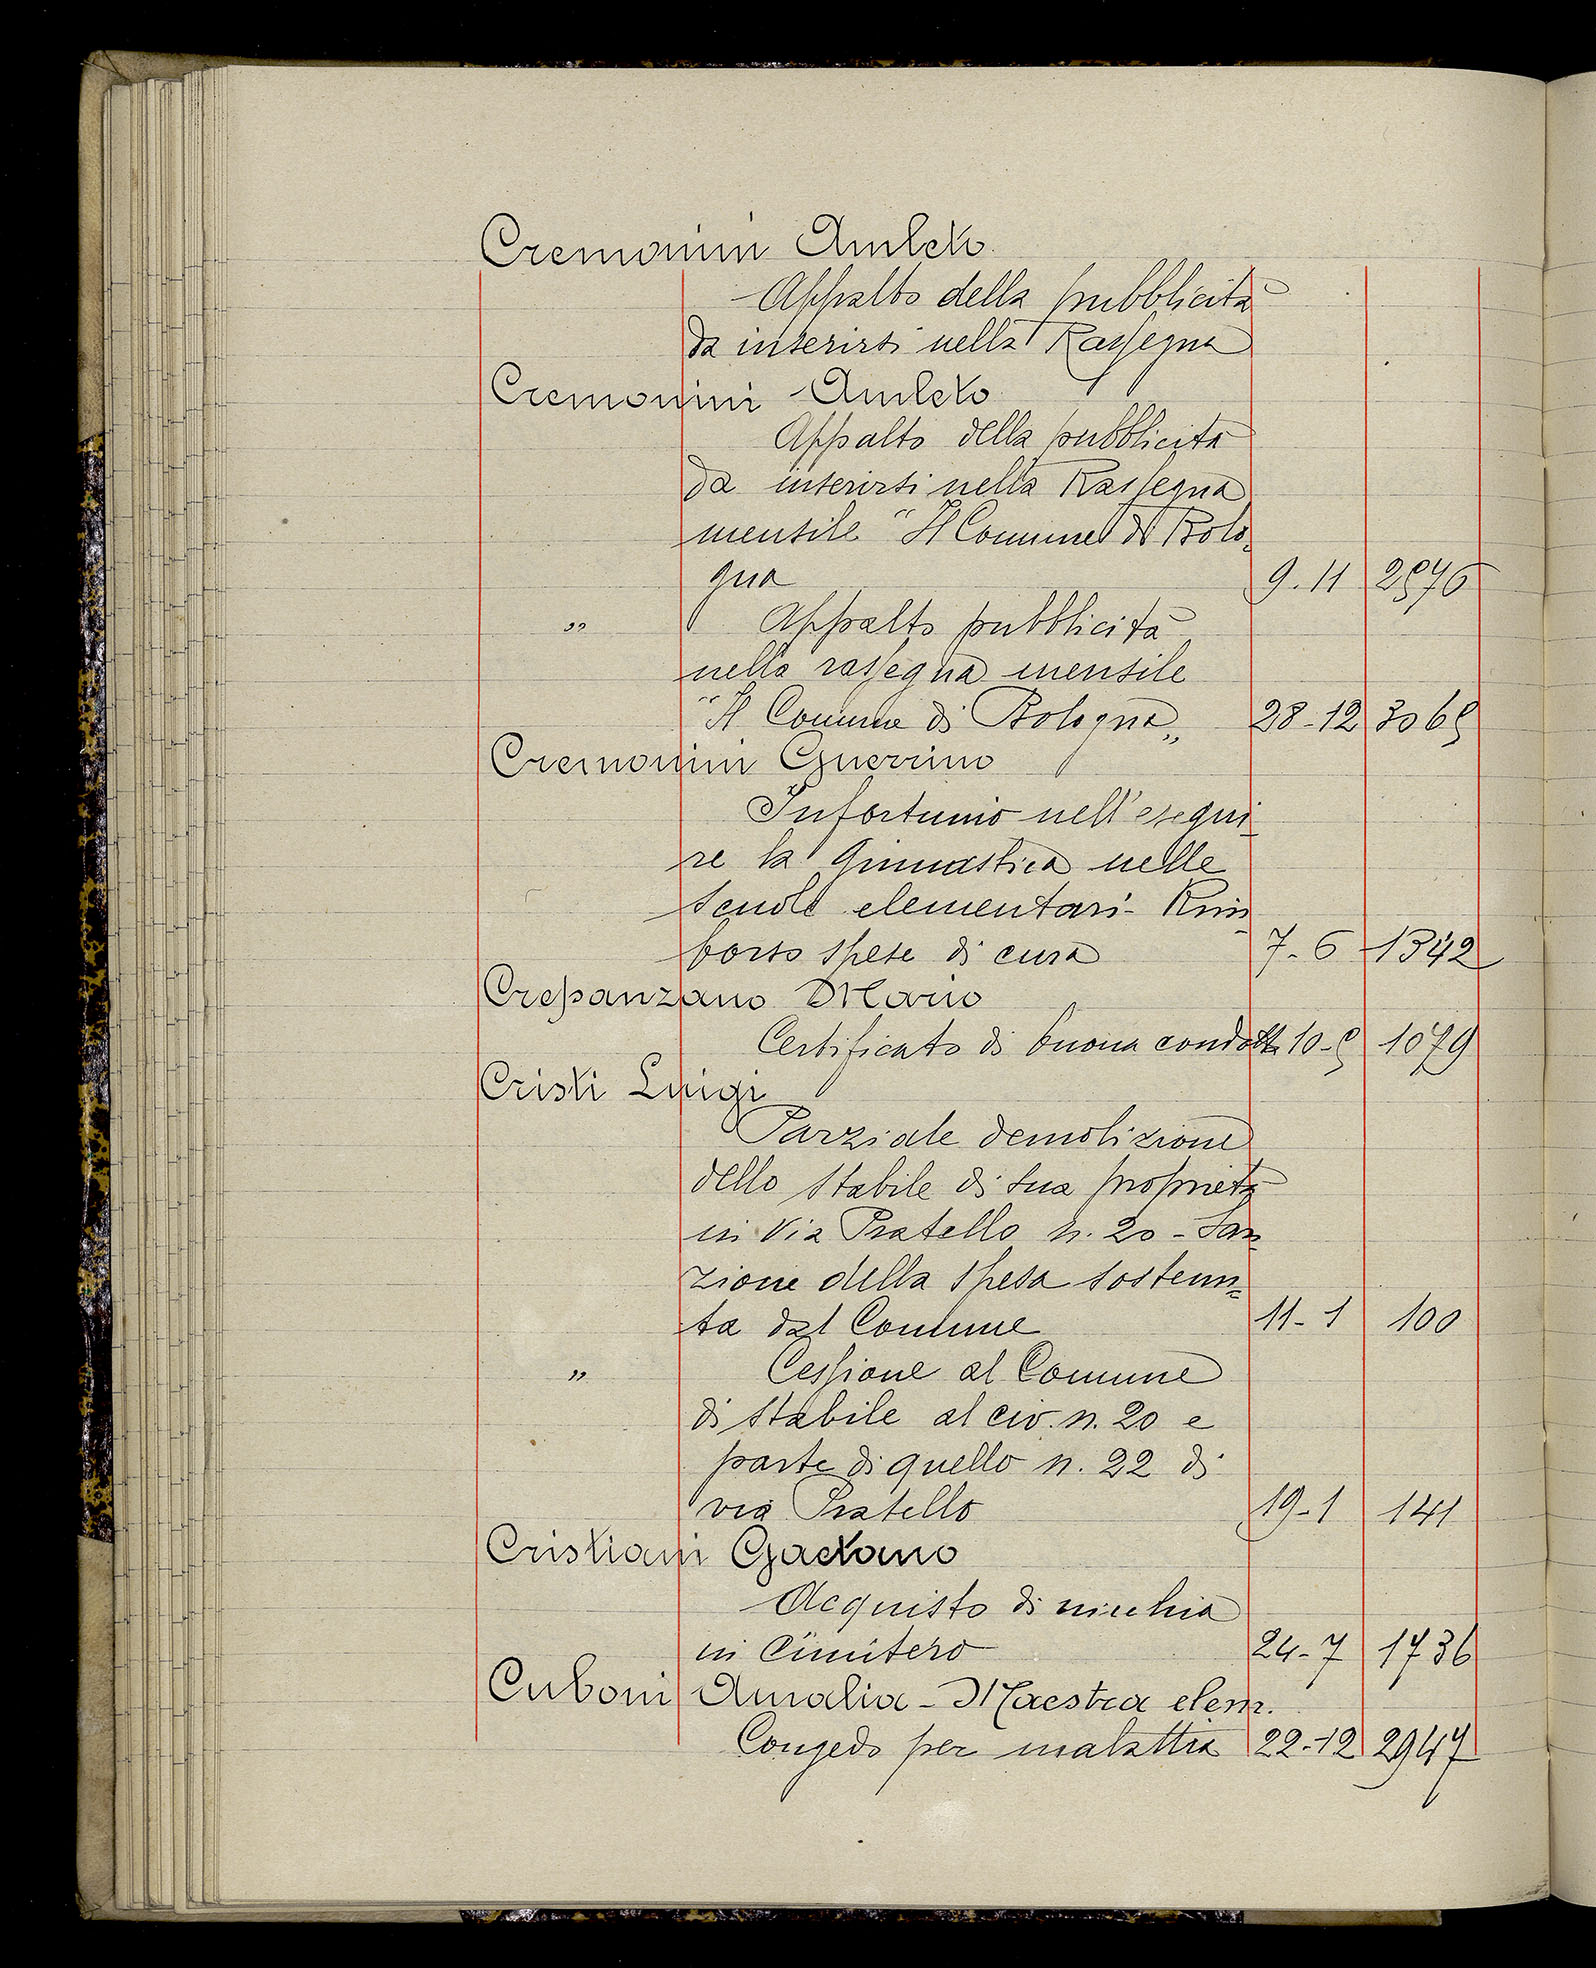 Cremonini Amleto
Appalto della pubblicità
da inserirsi nella Rassegna
Cremonini Amleto
Appalto della pubblicità
da inserirsi nella Rassegna
mensile "Il Comune di Bolo-
gna 9.11 2576
" Appalto pubblicità
nella rassegna mensile
"Il Comune di Bologna" 28-12 3065
Cremonini Guerrino
Infortunio nell'esegui-
re la ginnastica nelle
scuole elementari - Rim-
borso spese di cura 7-6 1342
Crepanzano Mario
Certificato di buona condotta 10-5 1079
Cristi Luigi
Parziale demolizione
dello stabile di sua proprietà
in Via Pratello n. 20 - San-
zione della spesa sostenu=
ta dal Comune 11-1 100
" Cessione al Comune
di stabile al civ. n. 20 e
parte di quello n. 22 di
via Pratello 19-1 141
Cristiani Gaetano
Acquisto di nicchia
in Cimitero 24-7 1736
Cuboni Amalia - Maestra elem.
Congedo per malattia 22-12 2947